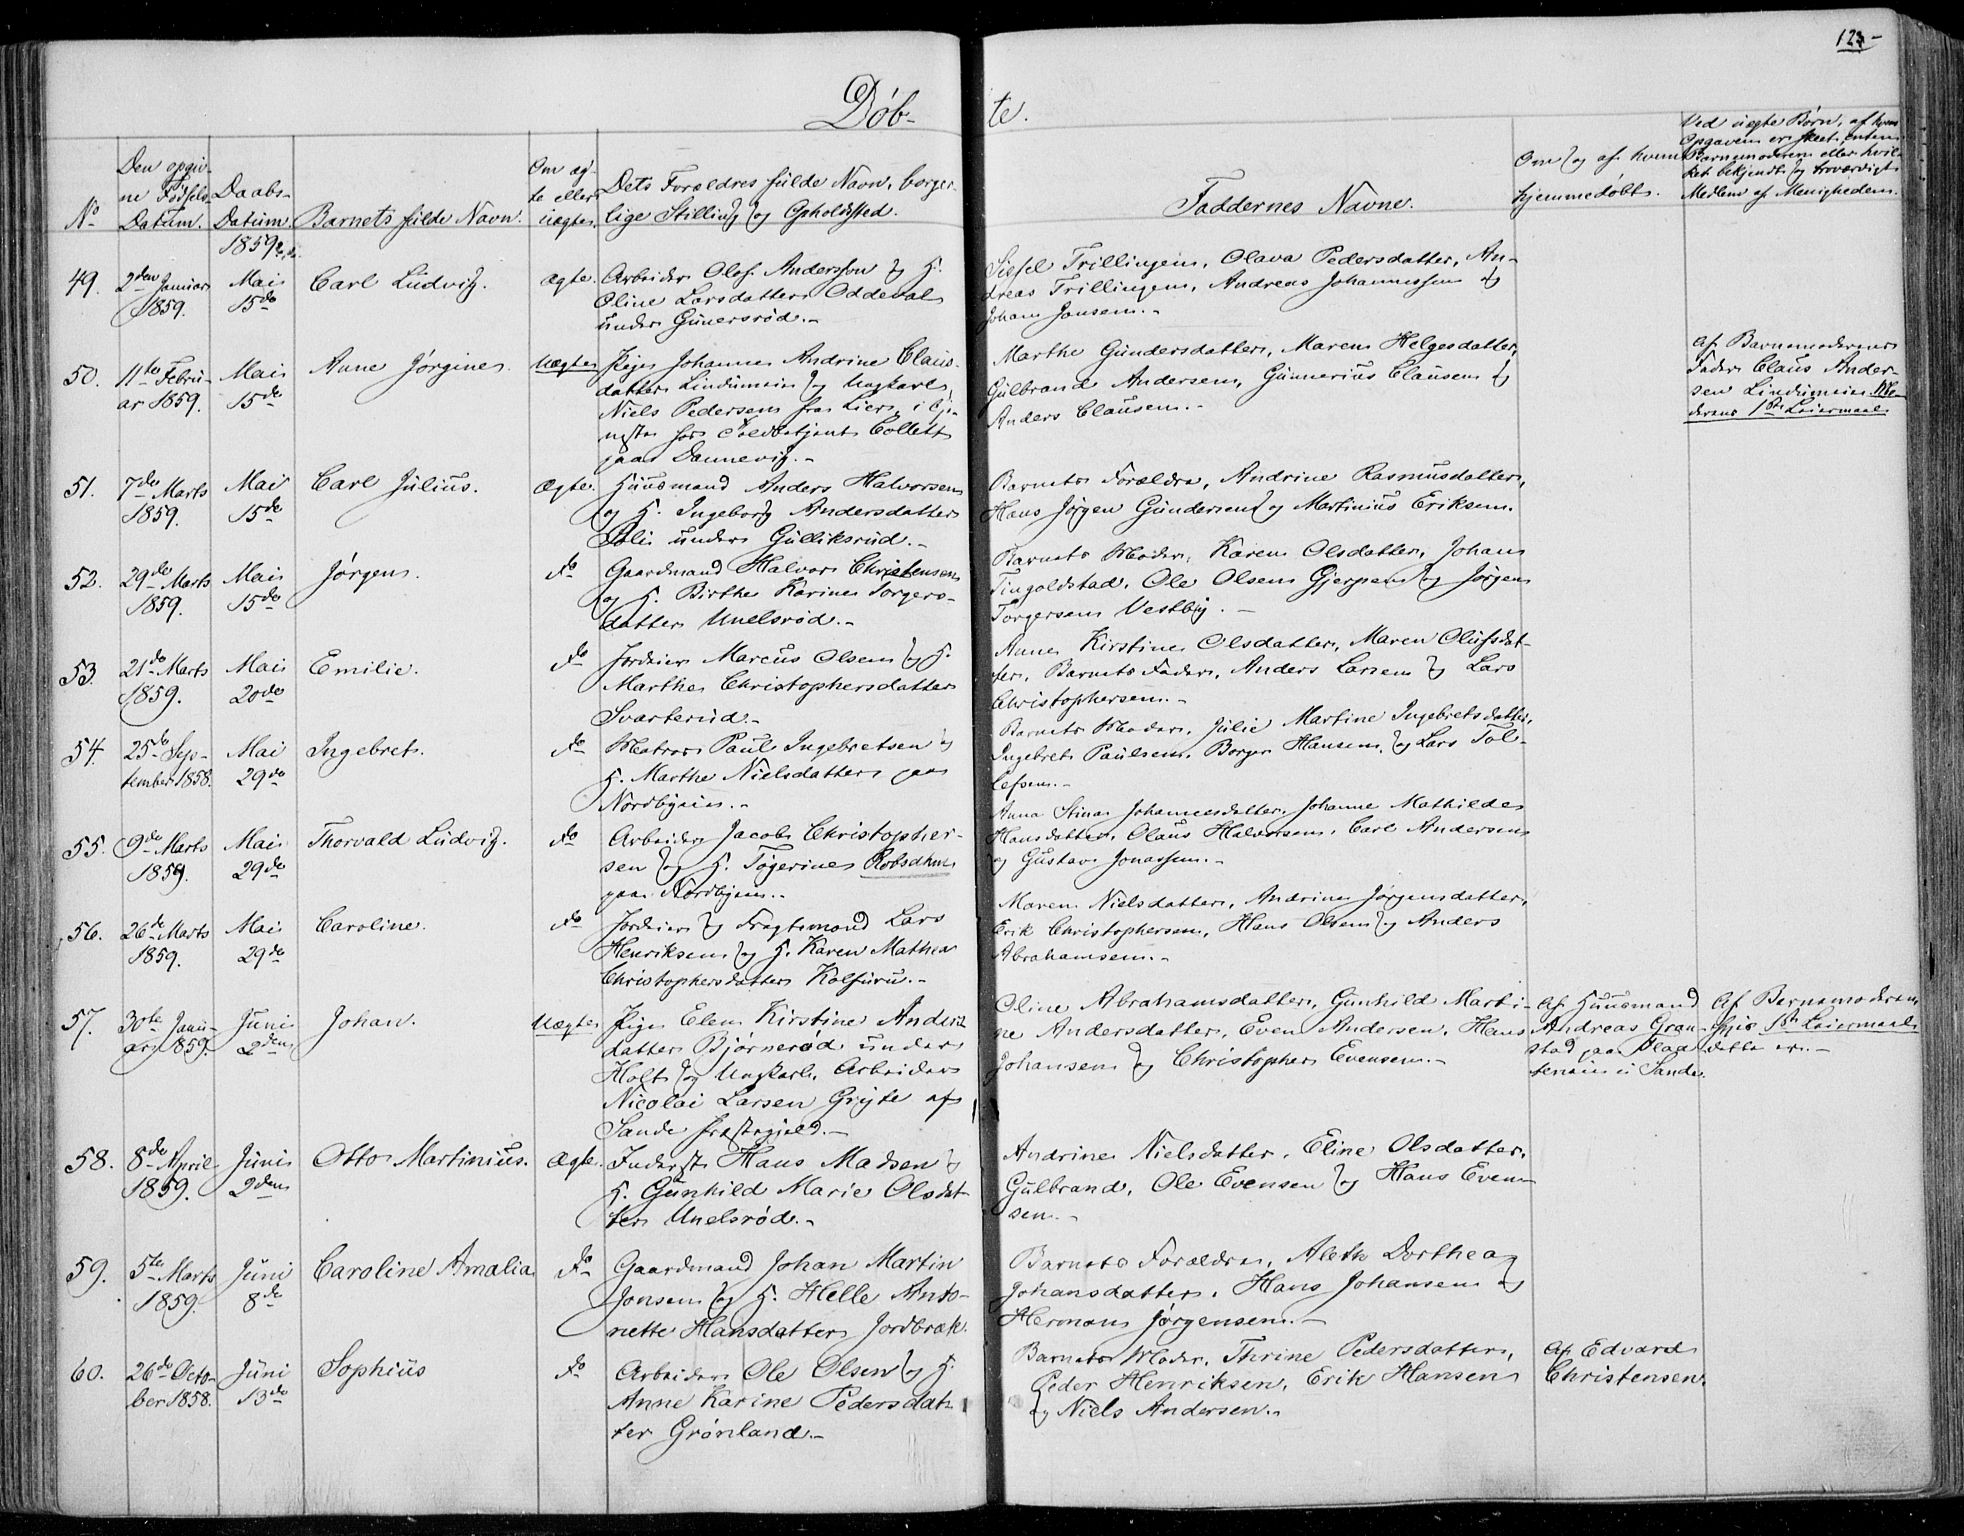 123
Døb-
te.
No
Den opgiv-
ne Fødsels
Datum.
Daabs-
Datum
1859
Barnets fulde Navn.
Om æg-
te eller
uægte.
Dets Forældres fulde Navn, borger-
lige Stilling og Opholdssted.
Faddernes Navne.
Om og af hvem
hjemmedøbt.
Ved uægte Børn, af hvem
Opgaven er skeet, enten
Barnemoderen eller hvil-
ket bekjendt og troværdigt
Medlem af Menigheden.
49.
2den Januar
1859.
Mai
15de
Carl Ludvig.
Ægte.
Arbeider Olof Andersson og H.
Oline Larsdatter Oddeval
under Gunersrød.-
Sissel Trillingen, Olava Pedersdatter, An-
dreas Trillingen, Andreas Johannessen og
Johan Jansen.-
50.
11te Febru-
ar 1859.
Mai
15de
Anne Jørgine.
Uægte
Pige Johanne Andrine Claus-
datter Lindumeie og Ungkarl
Niels Pedersen fra Lier, i Tje-
neste hos Toldbetjent Collett
paa Dannevig.-
Marthe Gundersdatter, Maren Helgesdatter,
Gulbrand Andersen, Gunnerius Clausen og
Anders Clausen.-
Af Barnemoderens
Fader Claus Ander-
sen Lindumeie Mo-
derens 1ste Leiermaal
51.
7de Marts
1859.
Mai
15de
Carl Julius.
Ægte.
Huusmand Anders Halvorsen
og H. Ingeborg Andersdatter
Bolie under Gulliksrud.-
Barnets Forældre, Andrine Rasmusdatter,
Hans Jørgen Gundersen og Martinius Eriksen.
52.
29de Marts
1859.
Mai
15de
Jørgen.
do
Gaardmand Halvor Christensen
og H. Birthe Karine Torgers-
datter Unelsrød.-
Barnets Moder, Karen Olsdatter, Johan
Tingoldstad, Ole Olsen Gjerpen og Jørgen
Torgersen Vestby.-
53.
21de Marts
1859.
Mai
20de
Emilie.
do
Jordeier Marcus Olsen og H.
Marthe Christophersdatter
Svarterud.-
Anne Kirstine Olsdatter, Maren Olufsdat-
ter, Barnets Fader, Anders Larsen og Lars
Christophersen.-
54.
25de Sep-
tember 1858.
Mai
29de
Ingebret.
do
Matros Paul Ingebretsen og
H. Marthe Nielsdatter paa
Nordbyeie.-
Barnets Moder, Julie Martine Ingebretsdatter,
Ingebret Paulsen, Borger Hansen, og Lars Tol-
lefsen.-
55.
9de Marts
1859.
Mai
29de
Thorvald Ludvig.
do
Arbeider Jacob Christopher-
sen og H. Tøgerine Robsdhm
paa Nordbyeie.-
Anna Stina Johannesdatter, Johanne Mathilde
Hansdatter, Olaus Halvorsen, Carl Andersen
og Gustav Jonassen.-
56.
26de Marts
1859.
Mai
29de
Caroline.
do
Jordeier og Fragtemand Lars
Henriksen og H. Karen Mathea
Christophersdatter Kolfuru.-
Maren Nielsdatter, Andrine Jørgensdatter,
Erik Christophersen, Hans Olsen og Anders
Abrahamsen.-
57.
30te Janu-
ar 1859.
Juni
2den
Johan.
Uægte
Pige Elen Kirstine Anders-
datter Bjørnerød under
Holt og Ungkarl, Arbeider
Nicolai Larsen Gryte af
Sande Præstegield.-
Oline Abrahamsdatter, Gunhild Marti-
ne Andersdatter, Even Andersen, Hans
Johansen og Christopher Evensen.-
Af Huusmand
Andreas Gran-
stad paa Plad-
seneie i Sande.
Af Barnemoderen,
hvis 1ste Leiermaal
dette er.-
58.
8de April
1859.
Juni
2den
Otto Martinius.
Ægte.
Inderst Hans Madsen og
H. Gunhild Marie Olsdat-
ter Unelsrød.-
Andrine Nielsdatter, Eline Olsdatter,
Gulbrand, Ole Evensen og Hans Even-
sen.-
59.
5te Marts
1859.
Juni
8de
Caroline Amalia
do
Gaardmand Johan Martin
Jonsen og H. Helle Anto-
nette Hansdatter Jordbræk.
Barnets Forældre, Aleth Dorthea
Johansdatter, Hans Johansen og
Herman Jørgensen.-
60.
26de Octo-
ber 1858.
Juni
13de
Sophius
do
Arbeider Ole Olsen og H.
Anne Karine Pedersdat-
ter Grønland.-
Barnets Moder, Thrine Pedersdatter,
Peder Henriksen, Erik Hansen
og Niels Andersen.
Af Edvard
Christensen.